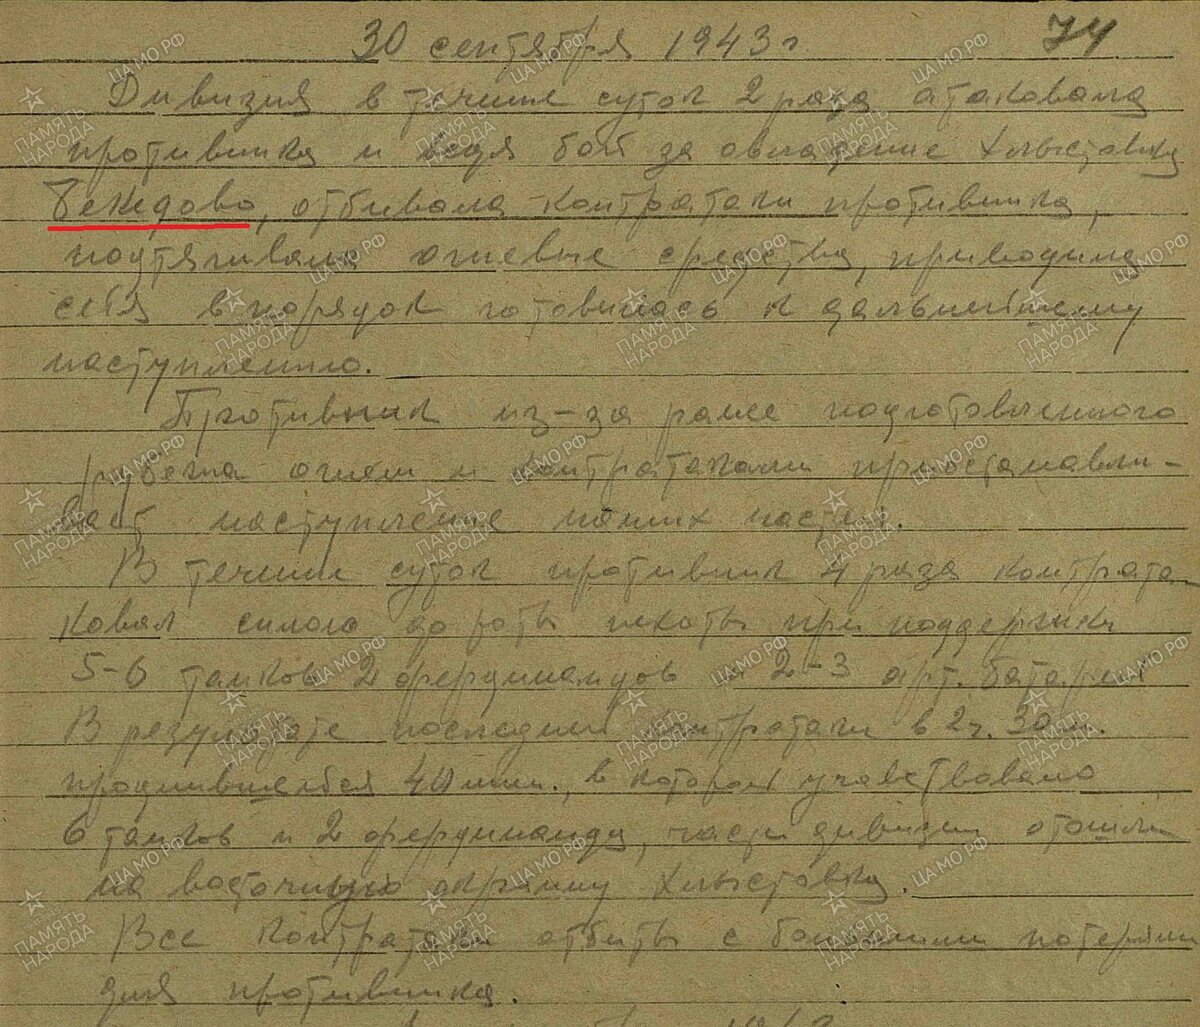 30 сентября 1943 г 74
Дивизия в течение суток 2 раза атаковала
противника и ведя бой за овладение Хлыстовка
Бекедово, отбивала контратаки противника,
подтягивала огневые средства, приводила
себя в порядок готовилась к дальнейшему
наступлению.
Противник из-за ранее подготовленного
рубежа огнем и контратаками приостанавли-
вает наступление наших частей.
В течении суток противник 4 раза контрата-
ковал силою до роты пехоты при поддержки
5-6 танков 2 фердинандов и 2-3 арт. батареи
В результате последней контратаки в 2ч. 30 м.
продлившейся 40 мин., в которой учавствовало
6 танков и 2 фердинанда, части дивизии отошли
на восточную окраину Хлыстовка.
Все контратаки отбиты с большими потерями
для противника.